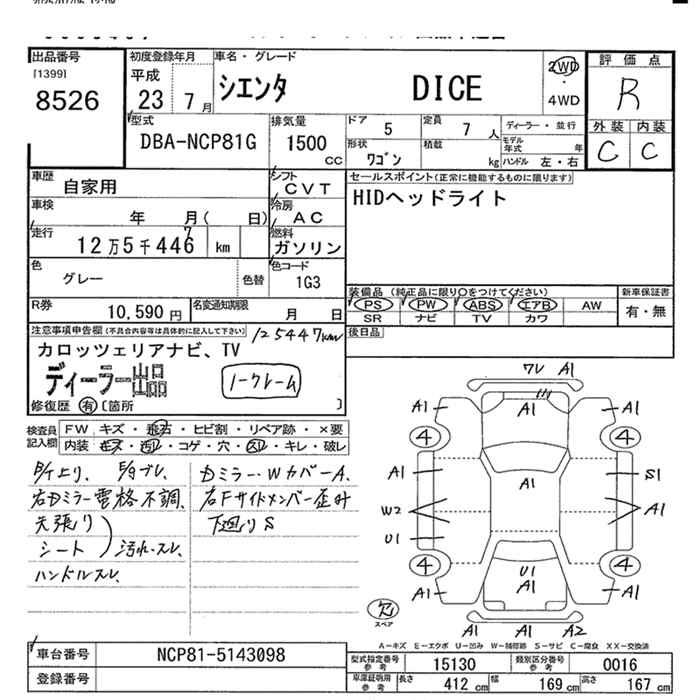 出品番号
[1399]
8526
初度登録年月
平成
23 7月
車名・グレード
シエンタ DICE
2WD
・
4WD
評価点
R
外装 内装
C C
型式
DBA-NCP81G
排気量
1500
CC
ドア 5
定員 7 人
ディーラー・並行
形状
ワゴン
積載 kg
モデル年式 年
ハンドル 左・右
車歴
自家用
シフト
CVT
車検
年 月( 日)
冷房
AC
走行
12万5千446 km
7
燃料
ガソリン
色
グレー
色替
色コード
1G3
R券
10,590円
名変通知期限
月 日
セールスポイント(正常に機能するものに限ります)
HIDヘッドライト
装備品(純正品に限り○をつけてください)
PS PW ABS エアB AW
SR ナビ TV カワ
新車保証書
有・無
後日品
注意事項申告欄(不具合内容等は具体的に記入して下さい)
125447km
カロッツェリアナビ、TV
ディーラー出品
ノークレーム
修復歴 有 [箇所 ]
検査員
記入欄
FW キズ・飛石・ヒビ割・リペア跡・×要
内装 キズ・汚れ・コゲ・穴・スレ・キレ・破レ
右Dミラー電格不調、
天張り
シート
汚れ・スレ
ハンドルスレ
Dミラー・WカバーA、
右Fサイドメンバー歪み
下廻りS
ワレ A1
A1
A1
A1
4
4
A1
A1
S1
W2
A1
U1
4
4
U1
A1
A1
A1
欠
スペア
A1
A2
A-キズ E-エクボ U-凹み W-補修跡 S-サビ C-腐食 XX-交換済
車台番号
NCP81-5143098
登録番号
型式指定番号
参考
15130
類別区分番号
参考
0016
車庫証明用
参考
長さ 412cm
幅 169cm
高さ 167cm